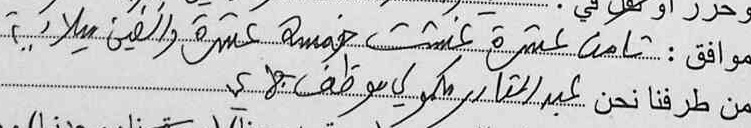 وحرر أو نقل في :
موافق : ثامن عشرة غشت خمسة عشرة والفين ميلادية
من طرفنا نحن عبد القادر مكولي موظف